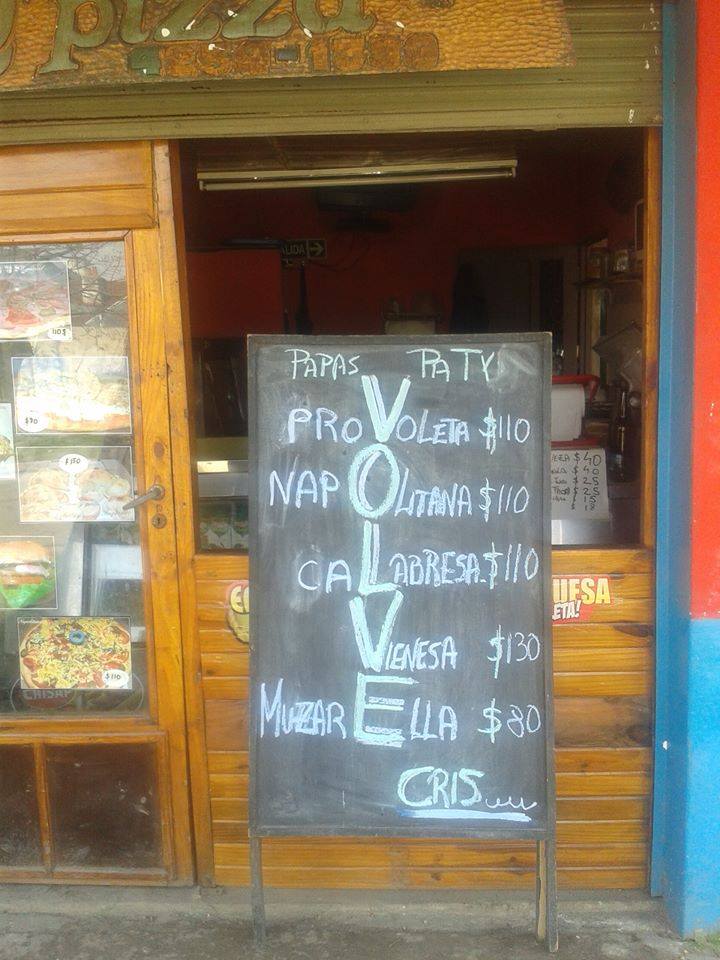 y pizza
SALIDA
PAPAS PATY
PROVOLETA $110
NAPOLITANA $110
CALABRESA $110
VIENESA $130
MUZZARELLA $80
CRIS
110$
$70
$150
$110
$40
$40
$25
$25
ETA!